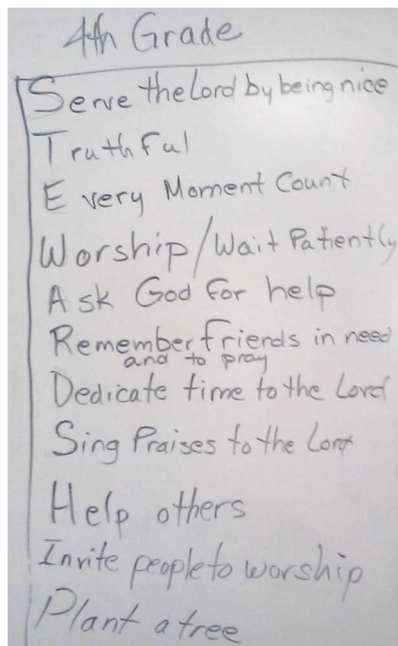 4th Grade
Serve the Lord by being nice
Truthful
Every Moment Count
Worship/Wait Patiently
Ask God for help
Remember friends in need
and to pray
Dedicate time to the Lord
Sing Praises to the Lord
Help others
Invite people to worship
Plant a tree